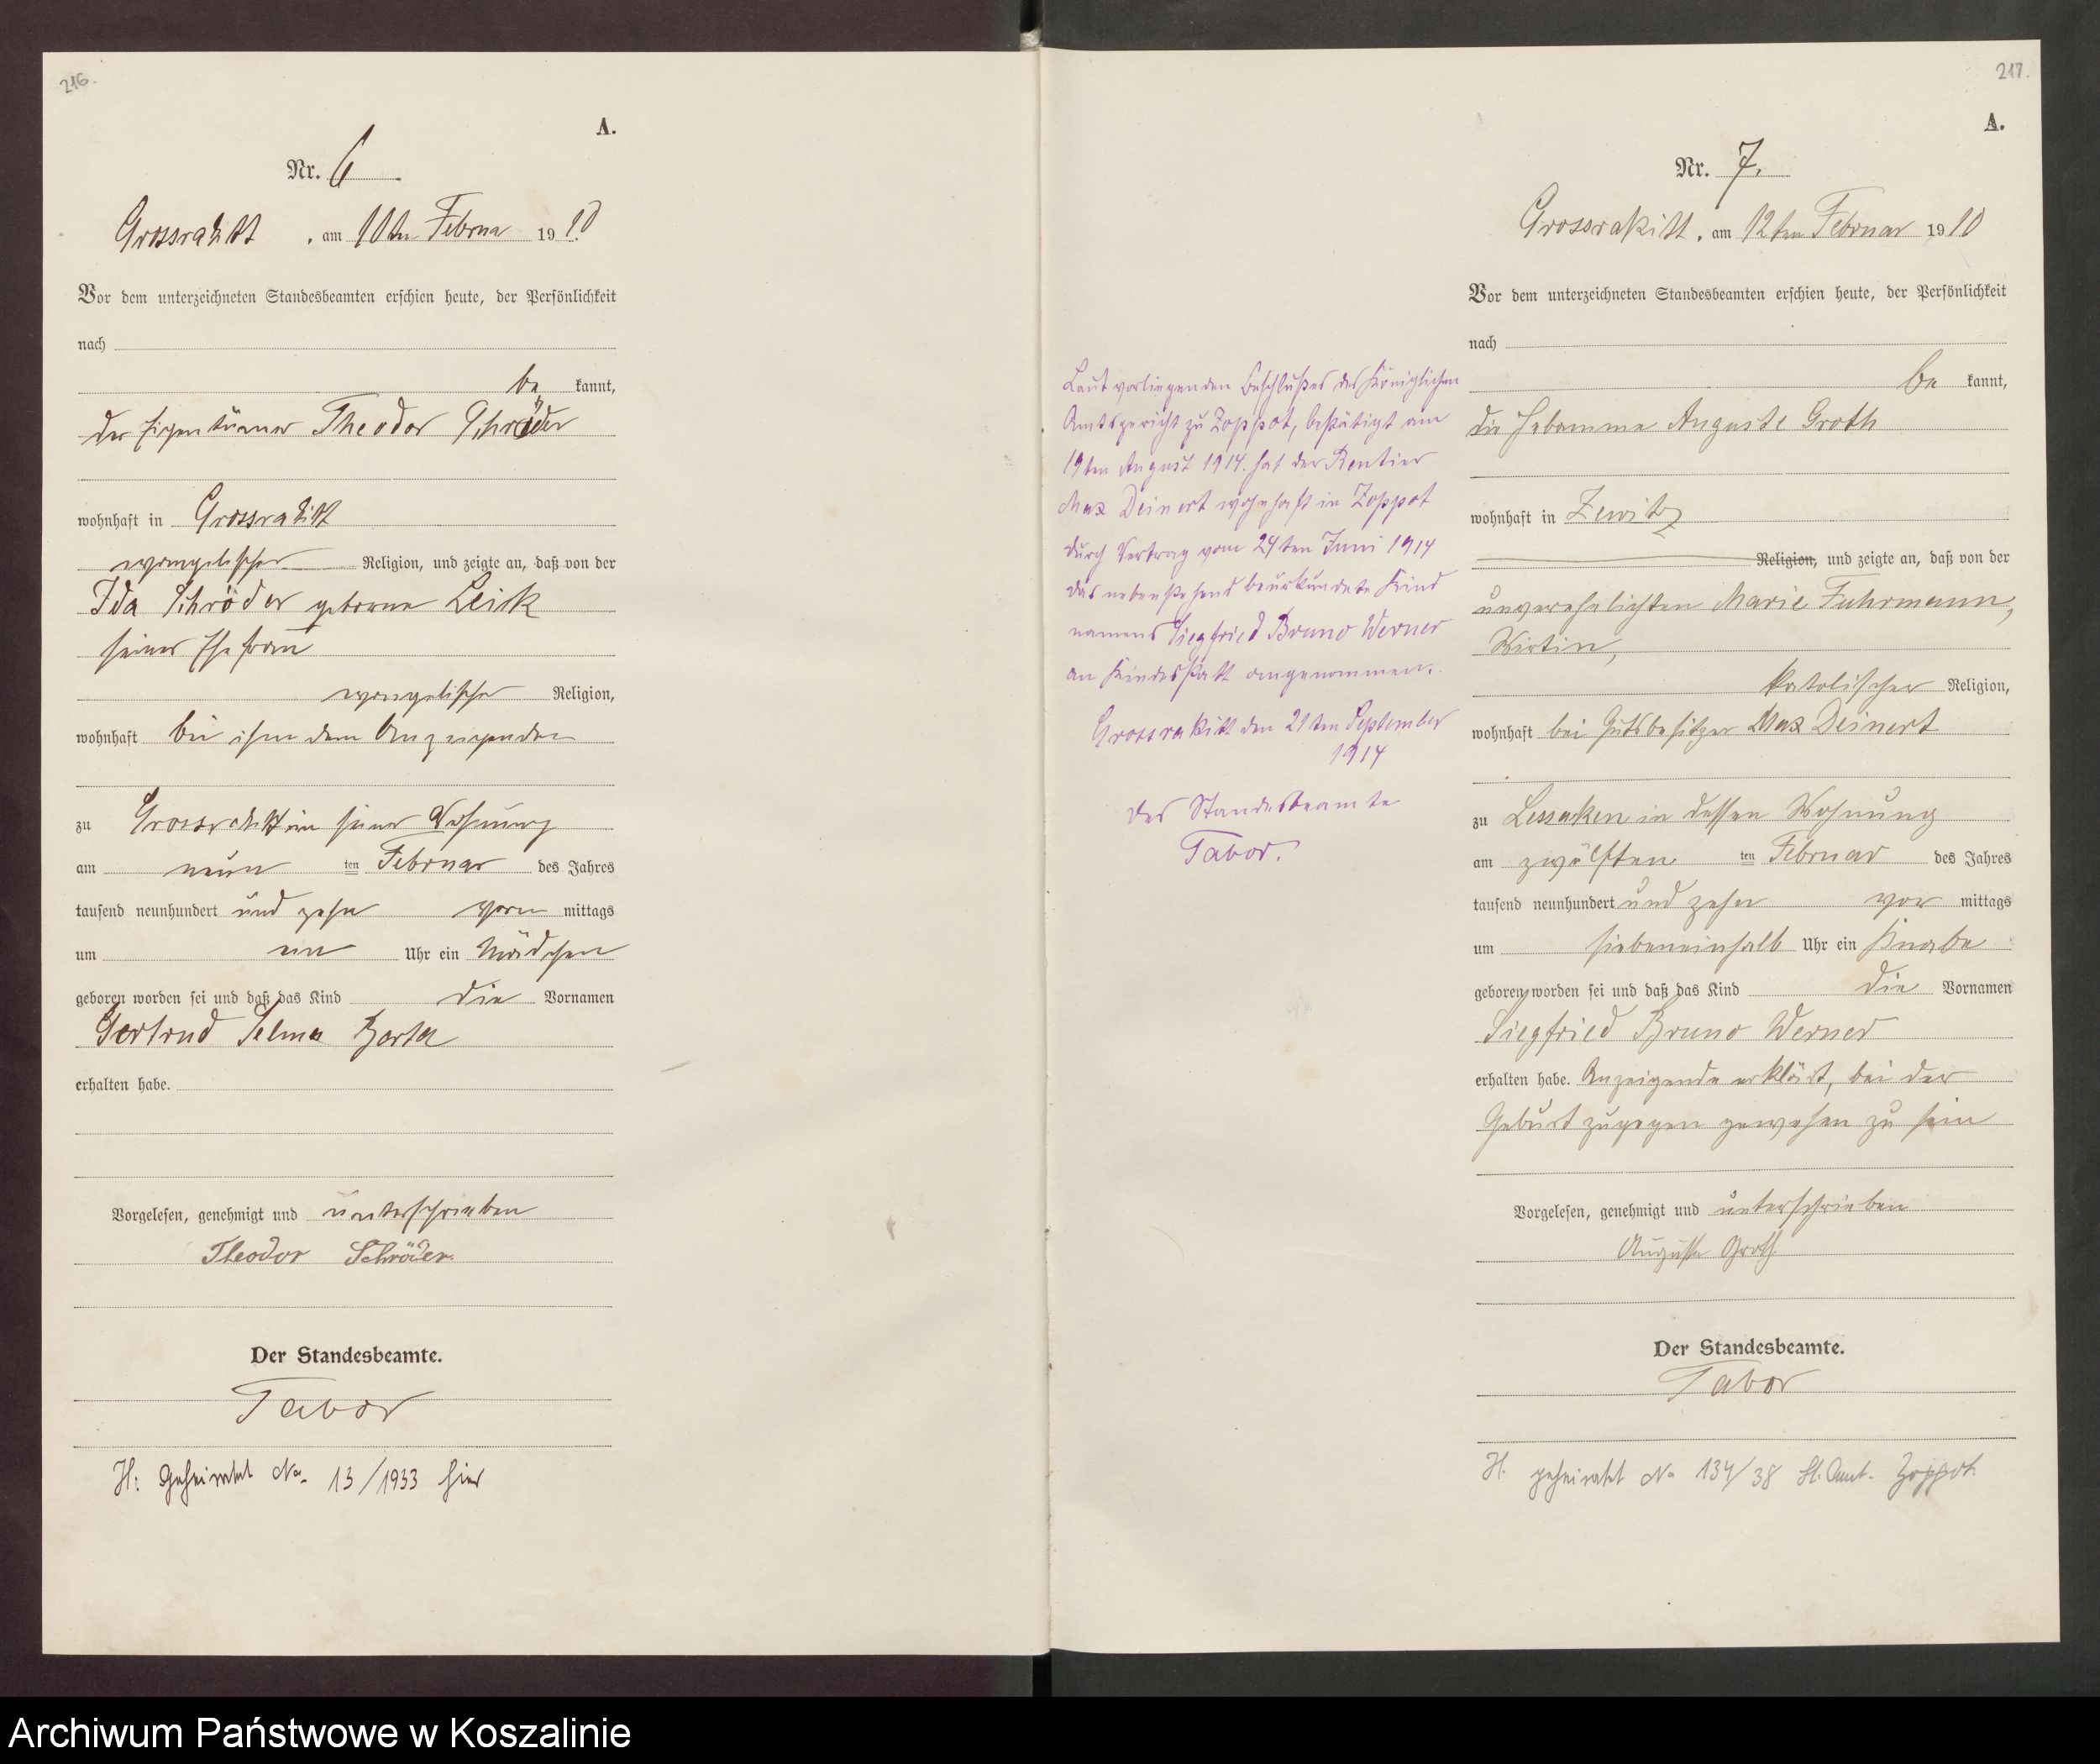 216.
A.
Nr. 6
Grossrakitt, am 10ten Februar 1910
Vor dem unterzeichneten Standesbeamten erschien heute, der Persönlichkeit
nach
be kannt,
der Eigentümer Theodor Schröder
wohnhaft in Grossrakitt
evangelischer Religion, und zeigte an, daß von der
Ida Schröder geborene Leik
seiner Ehefrau
evangelischer Religion,
wohnhaft bei ihm dem Anzeigenden
zu Grossrakitt in seiner Wohnung
am neun ten Februar des Jahres
tausend neunhundert und zehn vorm mittags
um Uhr ein Mädchen
geboren worden sei und daß das Kind die Vornamen
Gertrud Selma Berta
erhalten habe.
Vorgelesen, genehmigt und unterschrieben
Theodor Schröder.
Der Standesbeamte.
Tabor
H: Geheiratet No. 13/1933 hier
217.
A.
Nr. 7.
Grossrakitt, am 12ten Februar 1910
Vor dem unterzeichneten Standesbeamten erschien heute, der Persönlichkeit
nach
be kannt,
die Hebamme Auguste Groth
wohnhaft in Zewitz
Religion, und zeigte an, daß von der
unverehelichten Marie Fuhrmann,
Wirtin,
katolischer Religion,
wohnhaft bei Gutsbesitzer Max Deinert
zu Lessaken in dessen Wohnung
am zwölften ten Februar des Jahres
tausend neunhundert und zehn vor mittags
um siebeneinhalb Uhr ein Knabe
geboren worden sei und daß das Kind die Vornamen
Siegfried Bruno Werner
erhalten habe. Anzeigende erklärt, bei der
Geburt zugegen gewesen zu sein
Vorgelesen, genehmigt und unterschrieben
Auguste Groth
Der Standesbeamte.
Tabor
H. geheiratet No 134/38 St. Amt. Zoppot.
Laut vorliegenden Beschlußes des Königlichen
Amtsgericht zu Zoppot, bestätigt am
19ten August 1914. hat der Rentier
Max Deinert wohnhaft in Zoppot
durch Vertrag vom 24ten Juni 1914
das nebenstehend beurkundete Kind
namens Siegfried Bruno Werner
an Kindesstatt angenommen.
Grossrakitt den 21ten September
1914
Der Standesbeamte
Tabor.
Archiwum Państwowe w Koszalinie